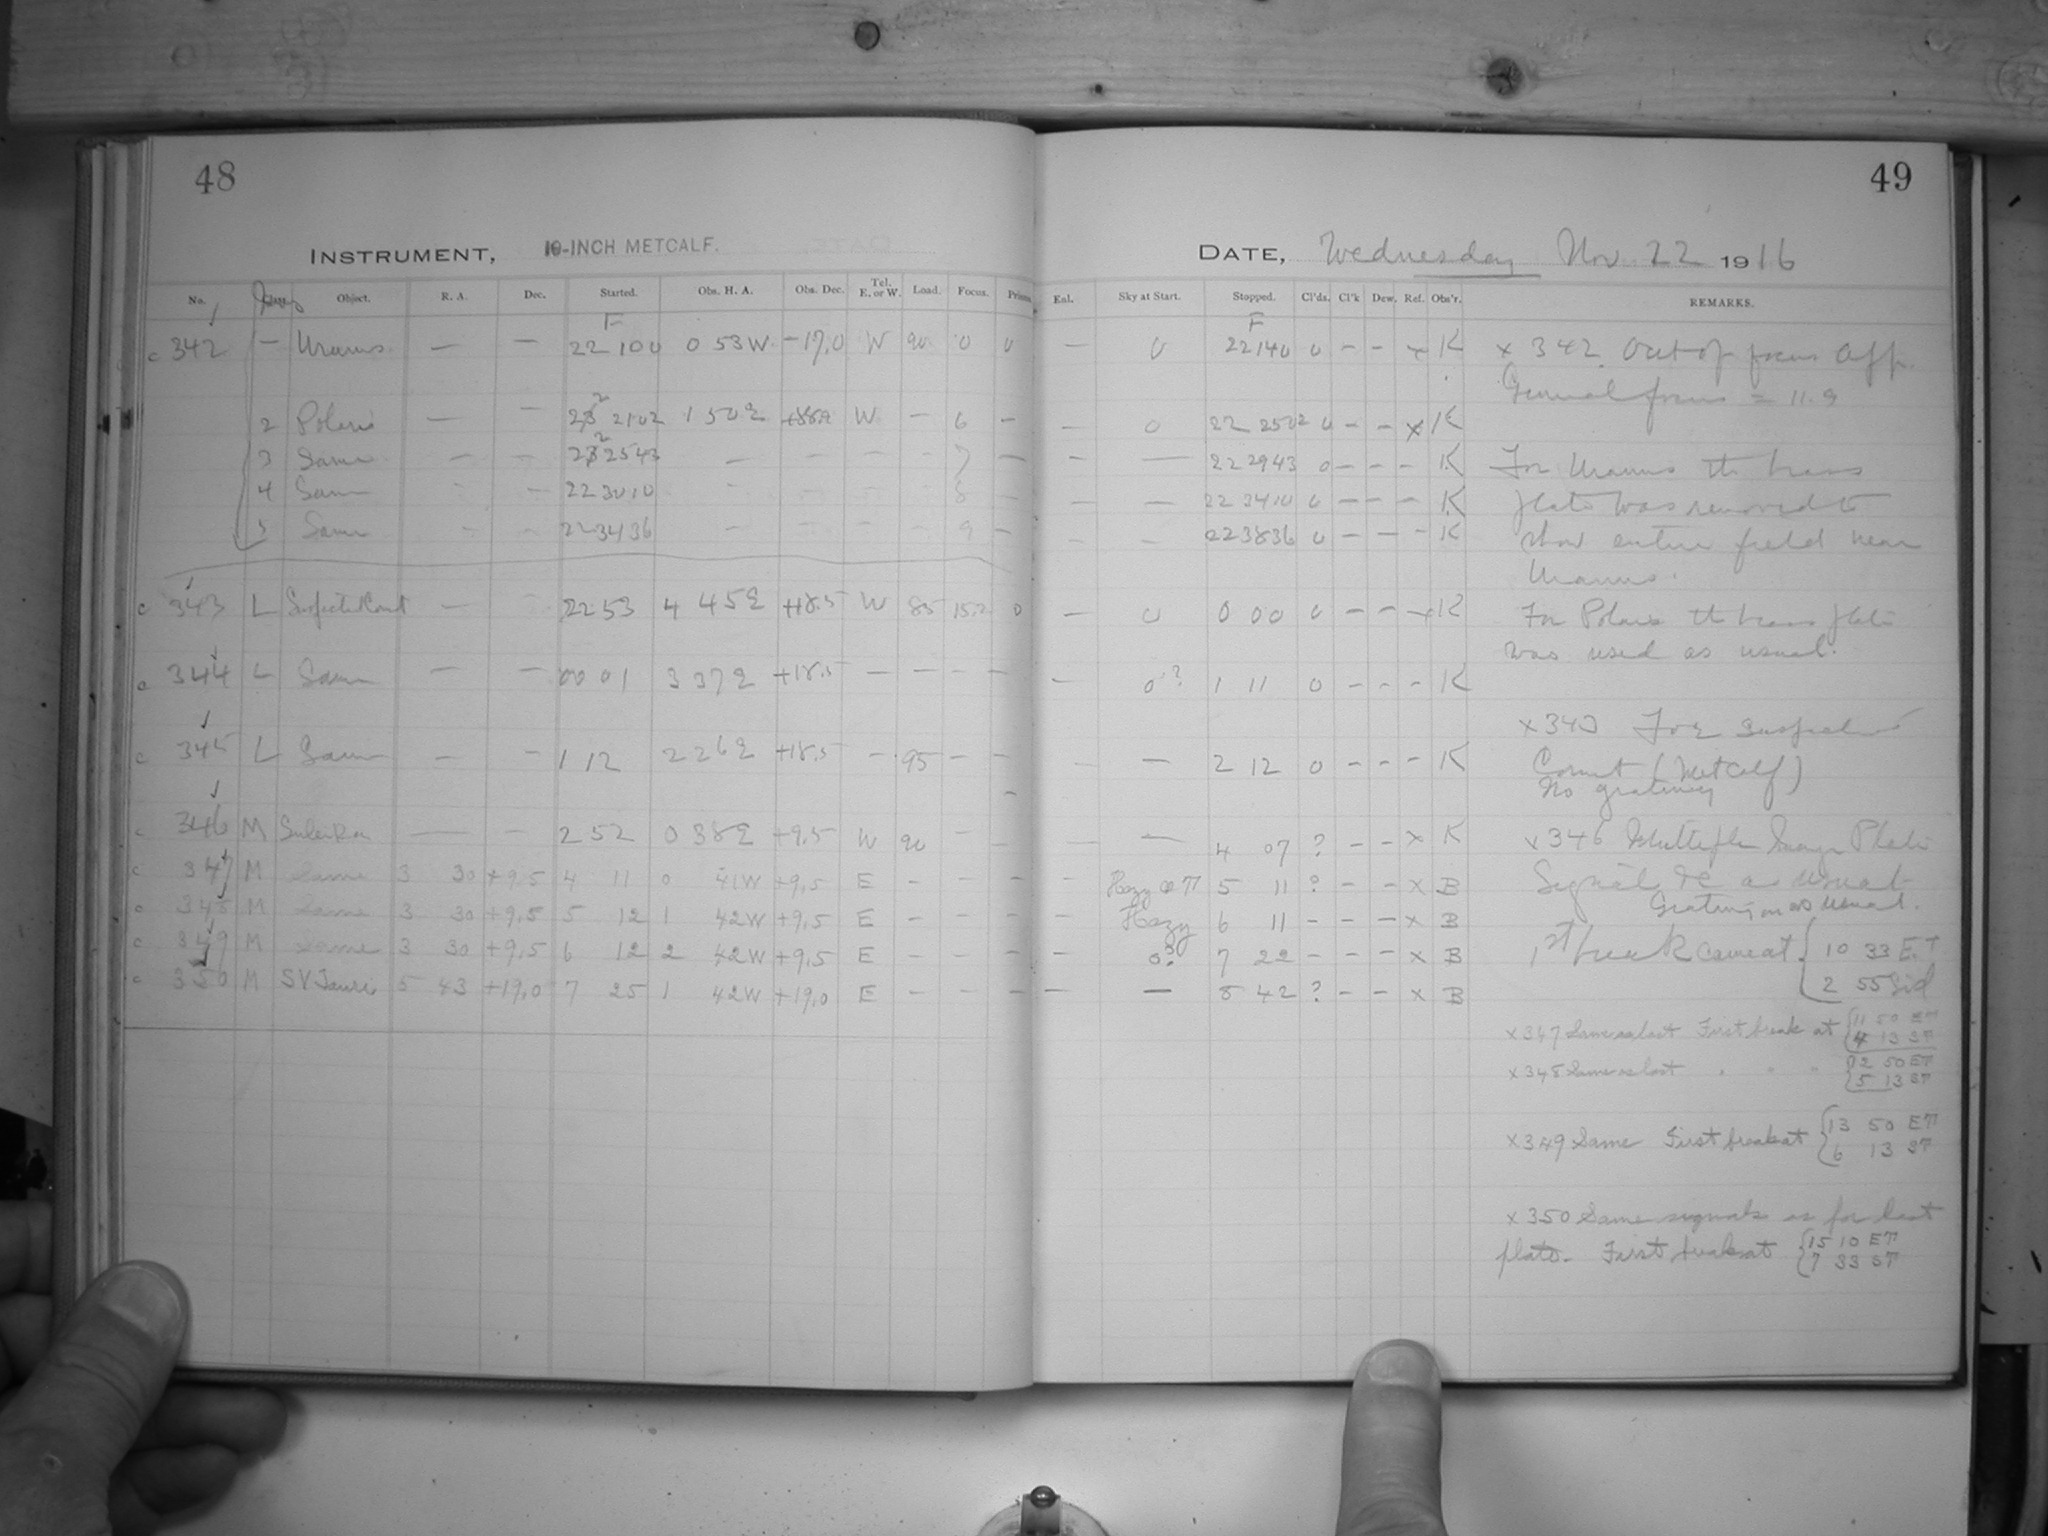 48
INSTRUMENT, 10-INCH METCALF.
No. Object. R. A. Dec. Started. Obs. H. A. Obs. Dec. Tel. E. or W. Load. Focus. Prism.
F
c 342 - Uranus - - 22 10 0 0 53 W -17.0 W 90 0 0
2 Polaris - - 22 21 02 1 50 E +88.9 W - 6 -
3 Same - - 22 25 43 - - - - 7 -
4 Same - - 22 30 10 - - - - 8 -
5 Same - - 22 34 36 - - - - 9 -
c 343 L Suspected Comet - - 22 53 4 45 E +18.5 W 85 15.2 0
c 344 L Same - - 00 01 3 37 E +18.5 - - - -
c 345 L Same - - 1 12 2 26 E +18.5 - 95 - -
c 346 M - - 2 52 0 38 E +9.5 W 90 - -
c 347 M Same 3 30 +9.5 4 11 0 41 W +9.5 E - - -
c 348 M Same 3 30 +9.5 5 12 1 42 W +9.5 E - - -
c 349 M Same 3 30 +9.5 6 12 2 42 W +9.5 E - - -
c 350 M SV Tauri 5 43 +19.0 7 25 1 42 W +19.0 E - - -
49
DATE, Wednesday Nov. 22 1916
Enl. Sky at Start. Stopped. Cl'ds. Cl'k Dew. Ref. Obs'r. REMARKS.
F
- 0 22 14 0 0 - - x K
- 0 22 25 02 0 - - x K
- - 22 29 43 0 - - - K
- - 22 34 10 0 - - - K
- - 22 38 36 0 - - - K
- 0 0 00 0 - - x K
- 0? 1 11 0 - - - K
- 2 12 0 - - - K
- - 4 07 ? - - x K
- Hazy 5 11 ? - - x B
- Hazy 6 11 - - - x B
- 0? 7 22 - - - x B
- - 8 42 ? - - x B
x 342 Out of focus
focus = 11.9
For Uranus the brass
plate was removed to
show entire field near
Uranus.
For Polaris the brass plate
was used as usual.
x 343 For suspected
Comet (Metcalf)
No grating
x 346 Multiple Image Plate
Signals &c as usual
Grating on as usual.
1st break came at { 10 33 E.T
2 55 Sid
x 347 Same as last First break at { 11 50 ET
4 13 ST
x 348 Same as last " " " { 12 50 ET
5 13 ST
x 349 Same First break at { 13 50 ET
6 13 ST
x 350 Same signals as for last
plate. First break at { 15 10 ET
7 33 ST